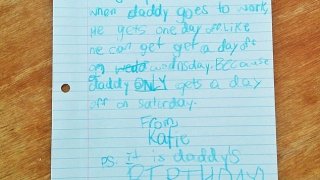 when daddy goes to work
He gets one day off. Like
he can get get a day off
on wednsday. BECause
daddy ONLY gets a day
off on saturday.
From
Katie
PS. It is daddy's
BIRTHDAY!